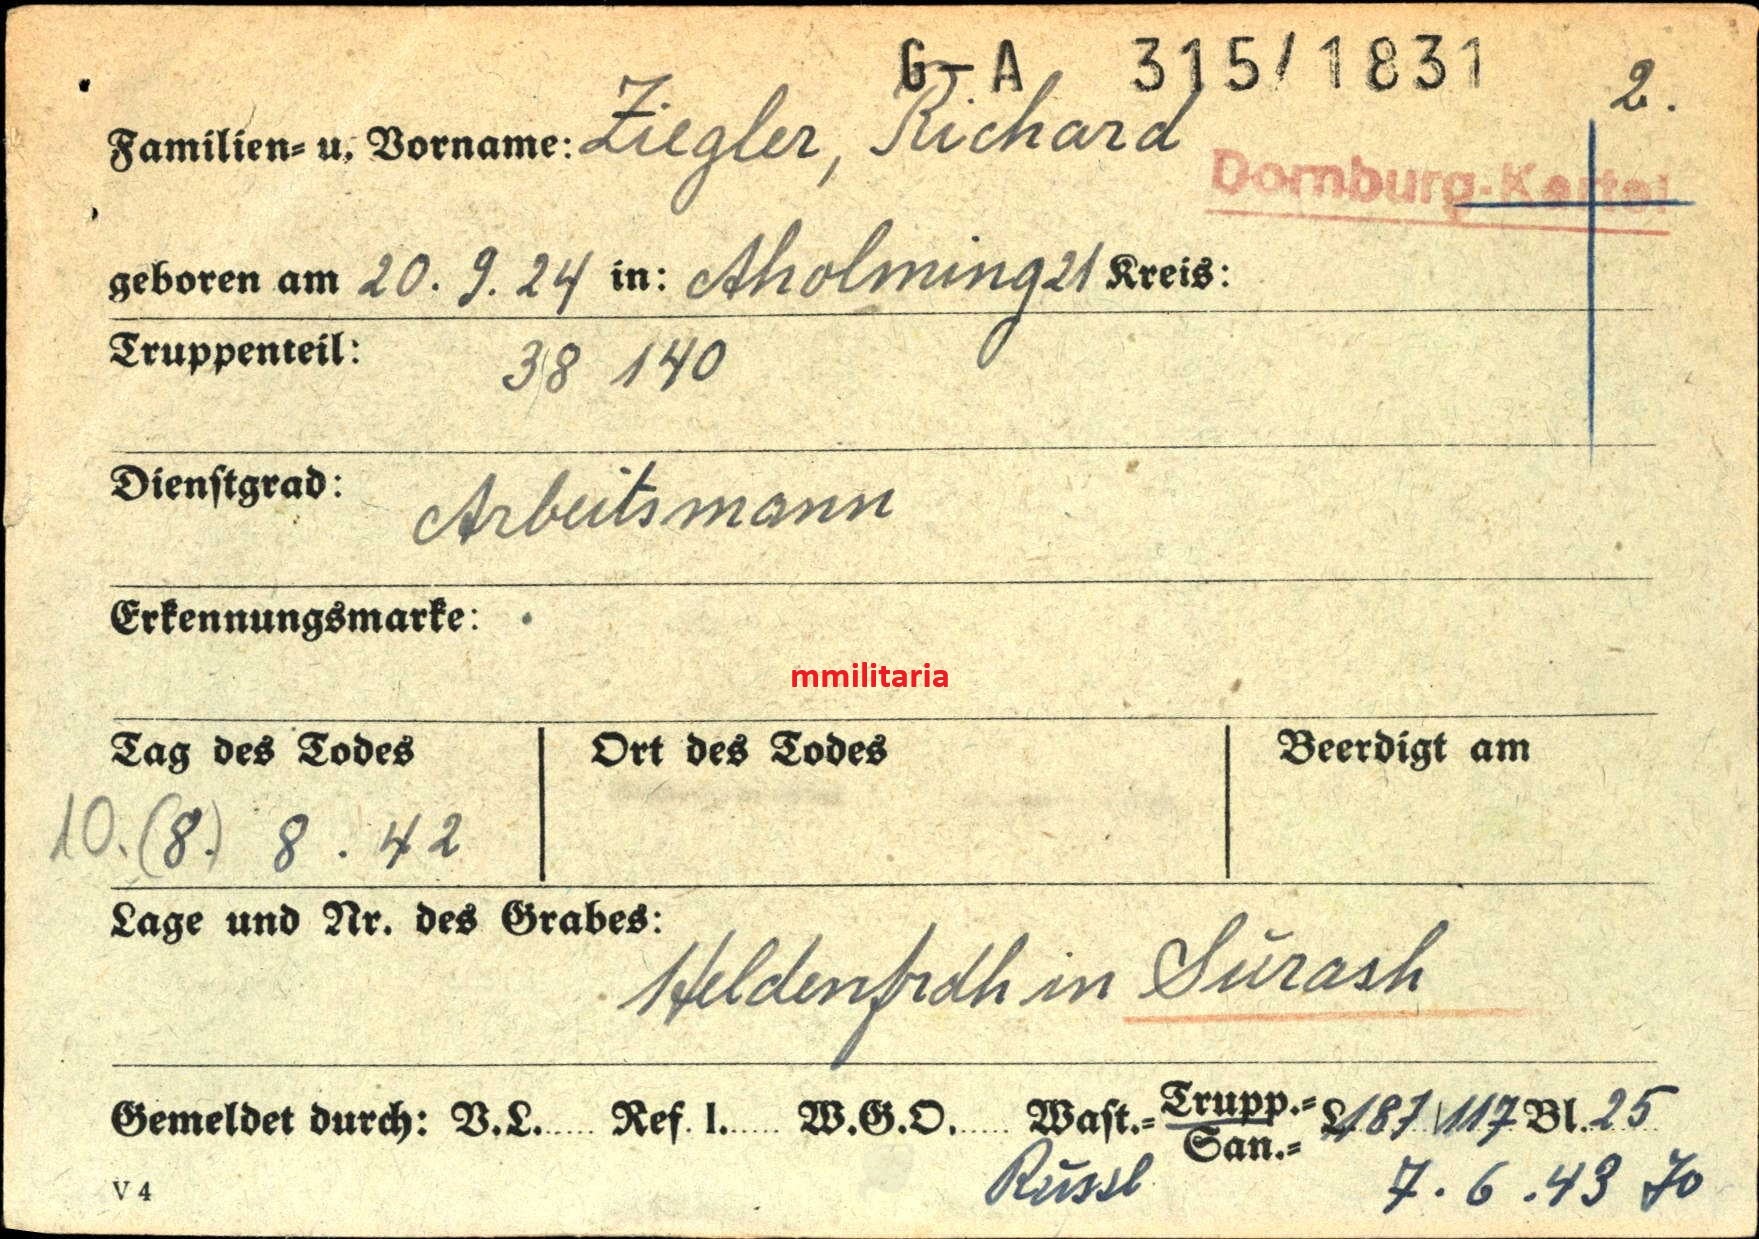 G-A 315/1831
2.
Familien- u. Vorname: Ziegler, Richard
Dornburg-Kartei
geboren am 20. 9. 24 in: Aholming 21 Kreis:
Truppenteil: 38 140
Dienstgrad: Arbeitsmann
Erkennungsmarke:
mmilitaria
Tag des Todes Ort des Todes Beerdigt am
10. (8.) 8. 42
Lage und Nr. des Grabes:
Heldenfrdh in Surash
Gemeldet durch: V.L. Ref. I. W.G.O. Wast.- Trupp.- L 187 117 Bl. 25
San.-
Russl 7. 6. 43 70
V 4